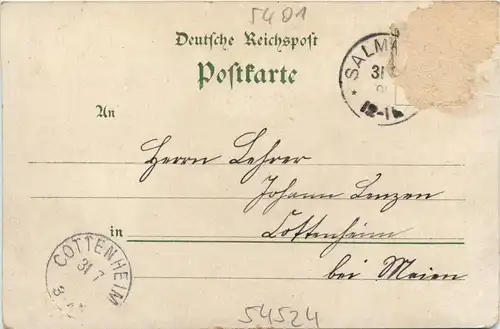 5401
Deutsche Reichspost
Postkarte
SALM
31
12-1
An
Herrn Lehrer
Johann Lenzen
in Cottenheim
bei Maien
COTTENHEIM
31 7
3
54524